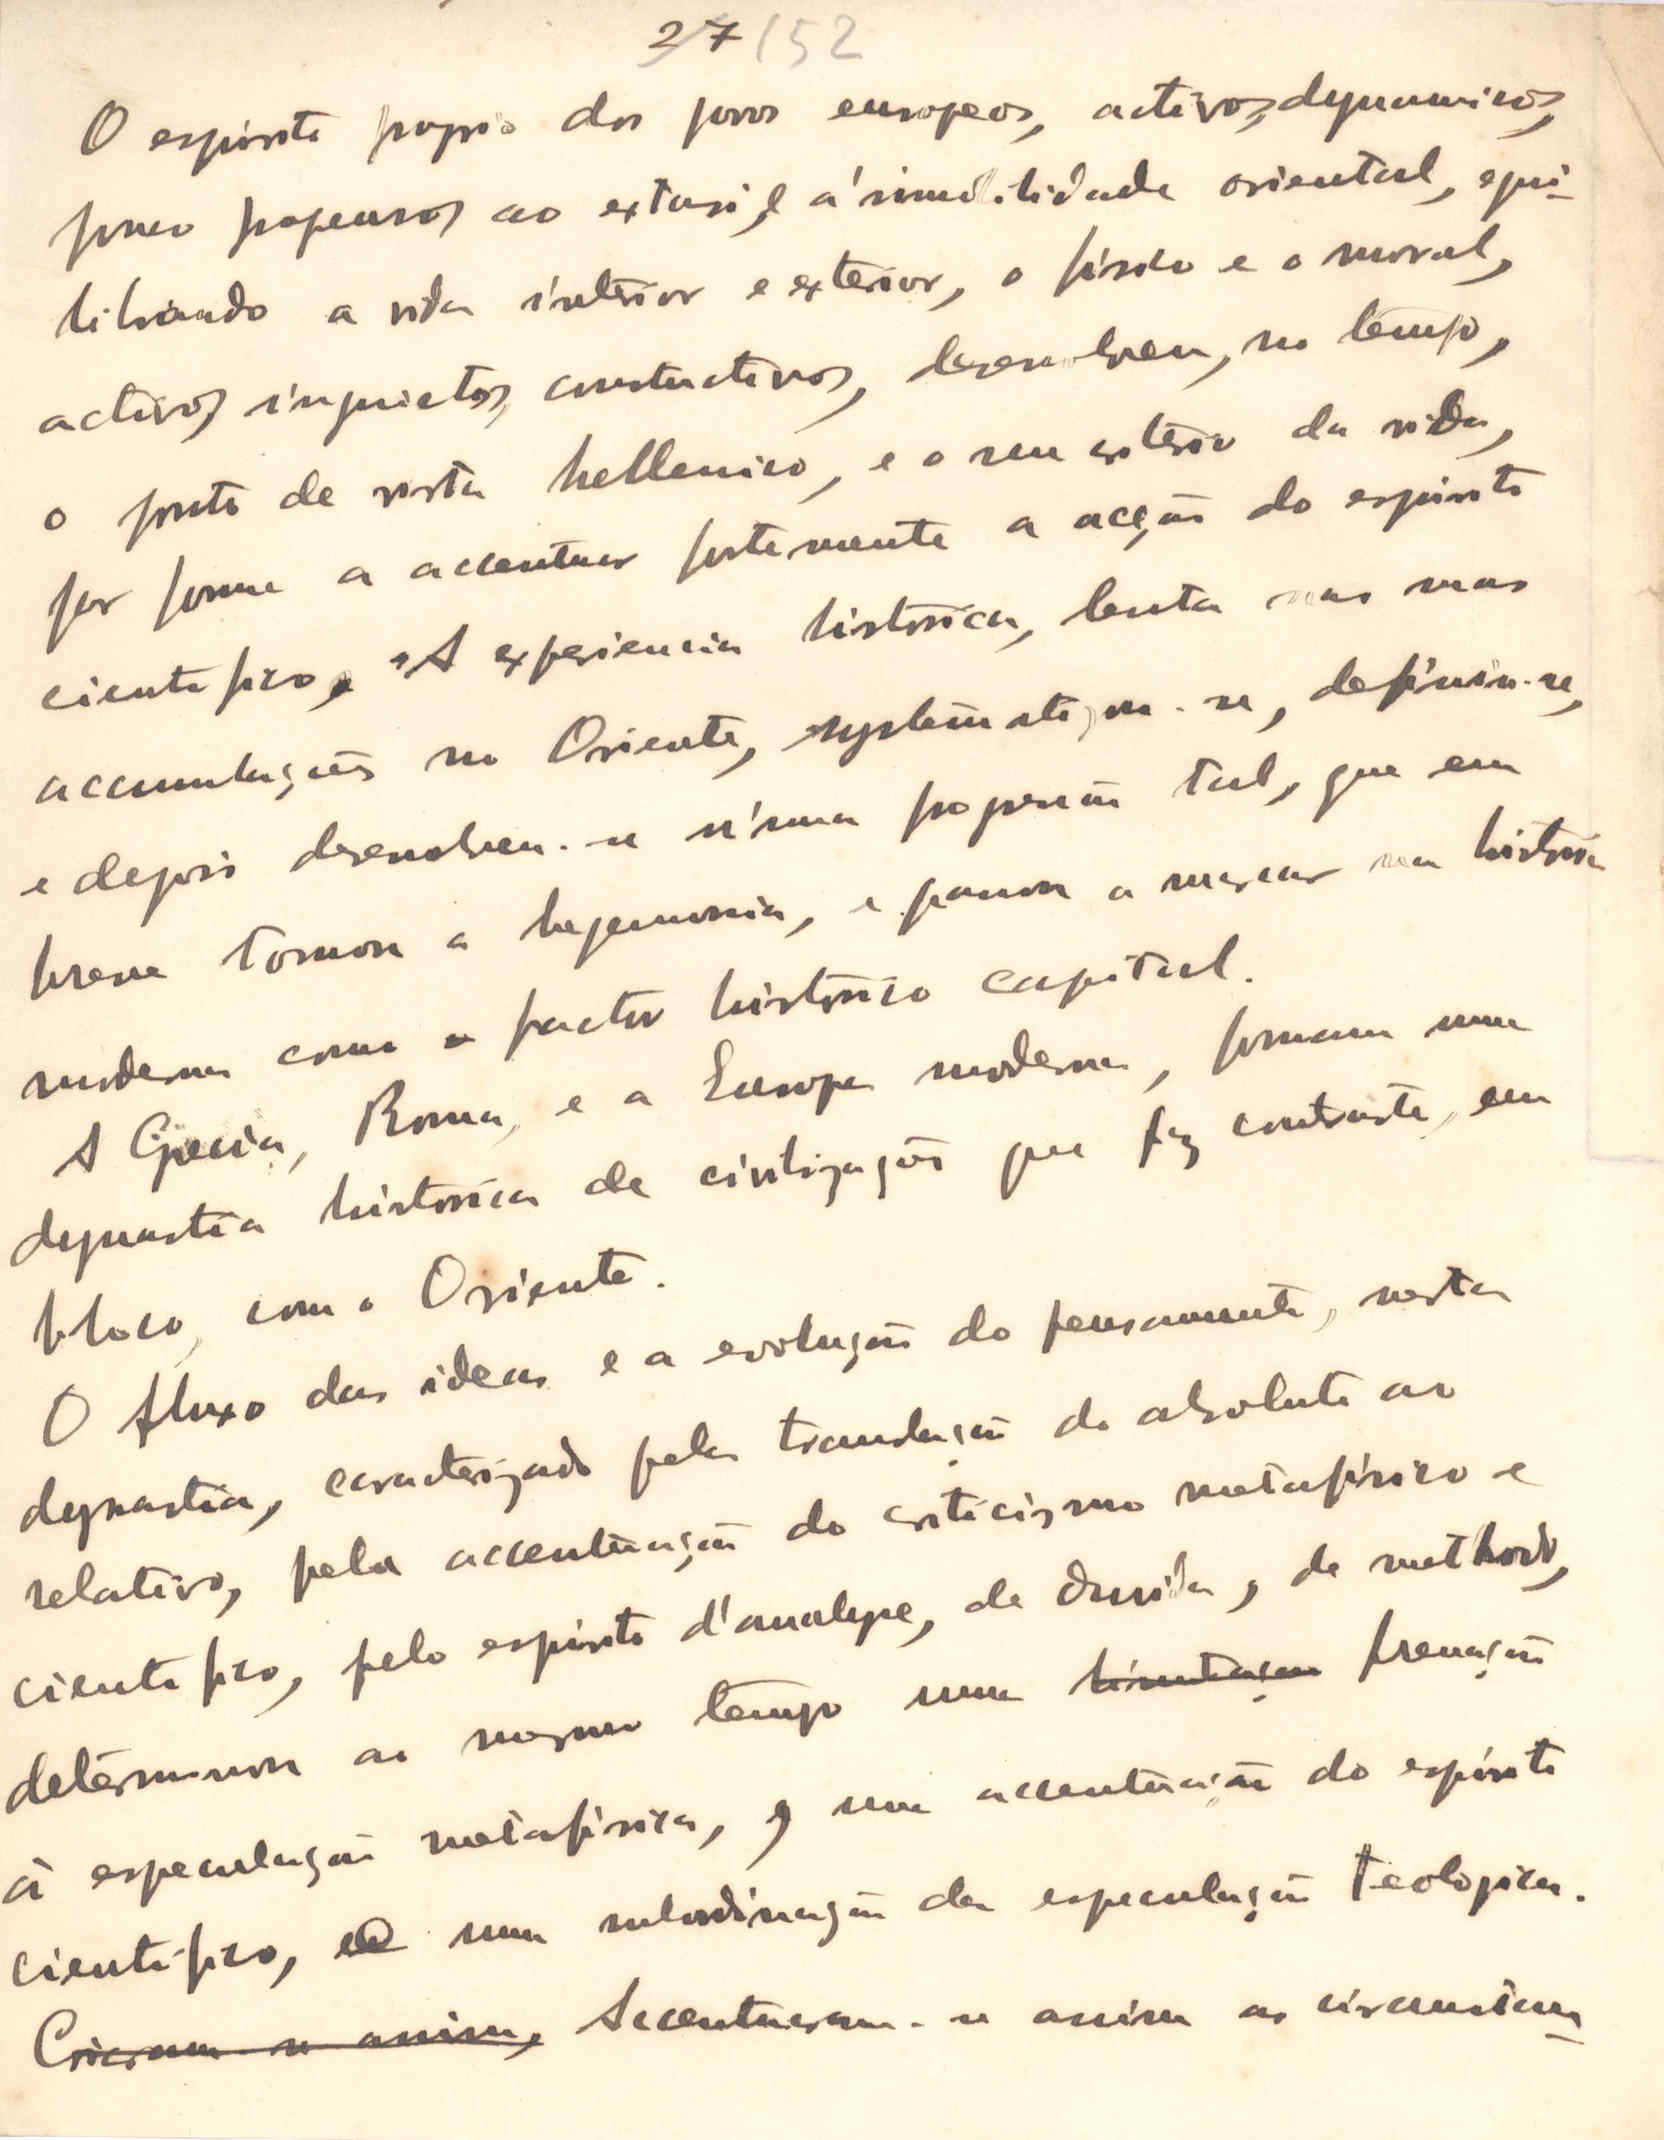 27/52
O espirito proprio dos povos europeos, activos, dynamicos,
pouco propensos ao extasi, e á immobilidade oriental, equi-
librando a vida interior e exterior, o físico e o moral,
activos, inquietos, constructivos, desenvolveu, no tempo,
o ponto de vista hellenico, e o seu criterio da vida,
por forma a accentuar fortemente a acção do espirito
cientifico. A experiencia historica, lenta nas suas
accumulações no Oriente, systematizou-se, definiu-se,
e depois desenvolveu-se n'uma progressão tal, que em
breve tomou a hegemonia, e passou a marcar na historia
moderna como o factor historico capital.
A Grecia, Roma, e a Europa moderna, formam uma
dynastia historica de civilização que fez contraste, em
bloco, com o Oriente.
O fluxo das ideas e a evolução do pensamento, nesta
dynastia, caracterizado pela translação do absoluto ao
relativo, pela accentuação do criticizmo metafísico e
cientifico, pelo espirito d'analyse, de duvida, de methodo,
determinou ao mesmo tempo uma limitação frenação
à especulação metafísica, e uma accentuação do espírito
cientifico, e uma subordinação da especulação teologica.
Criaram-se assim, Accentuaram-se assim as circunstan-